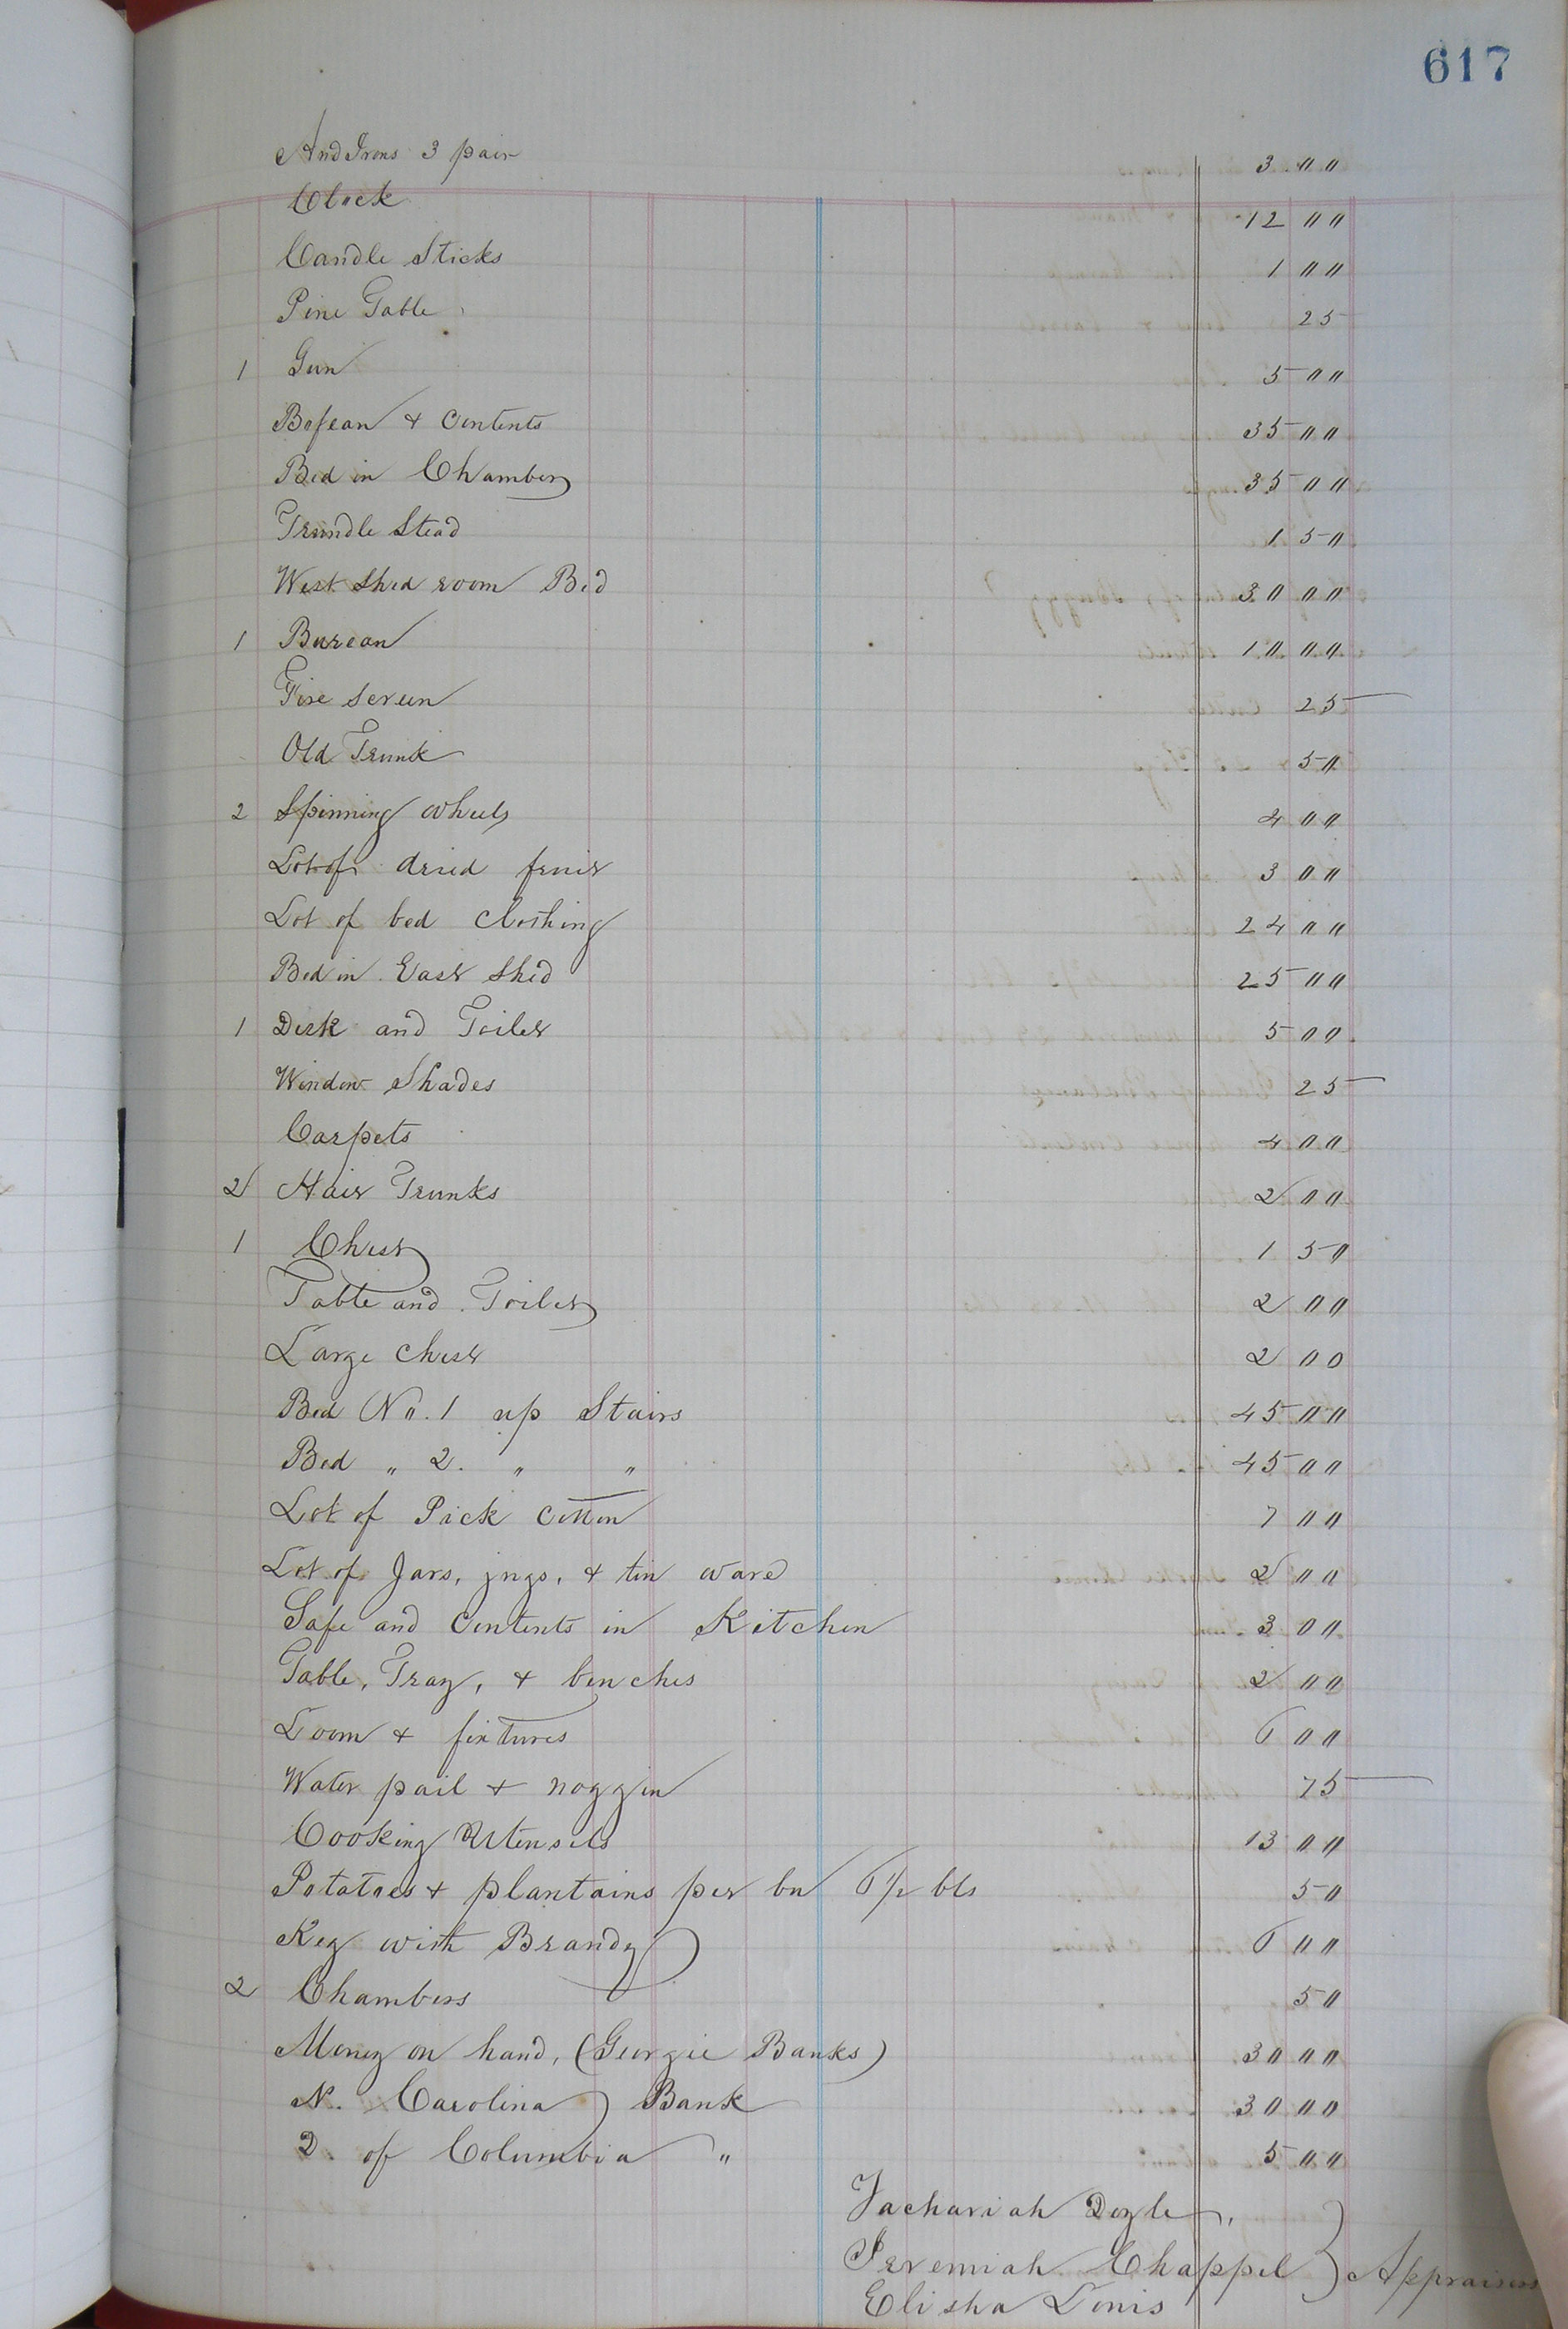 617
AndIrons 3 pair 3 00
Clock 12 00
Candle Sticks 1 00
Pine Table 25
1 Gun 5 00
Bofeau & Contents 35 00
Bed in Chamber 35 00
Trundle Stead 1 50
West Shed room Bed 30 00
1 Bureau 10 00
Fire screen 25
Old Trunk 50
2 Spinning wheels 4 00
Lot of dried fruit 3 00
Lot of bed Clothing 24 00
Bed in East Shed 25 00
1 Desk and Toilet 5 00
Window Shades 25
Carpets 4 00
2 Hair Trunks 2 00
1 Chest 1 50
Table and Toilet 2 00
Large Chest 2 00
Bed No. 1 up Stairs 45 00
Bed " 2. " " 45 00
Lot of Pick Cotton 7 00
Lot of Jars, jugs, & tin ware 2 00
Safe and Contents in Kitchen 3 00
Table, Tray, & benches 2 00
Loom & fixtures 6 00
Water pail & noggin 75
Cooking Utensils 13 00
Potatoes & plantains per bu 6 1/2 bls 50
Keg with Brandy 6 00
2 Chambers 50
Money on hand, (Georgie Banks) 30 00
N. Carolina Bank 30 00
D. of Columbia " 5 00
Zachariah Doyle,
Jeremiah Chappel } Appraisers
Elisha